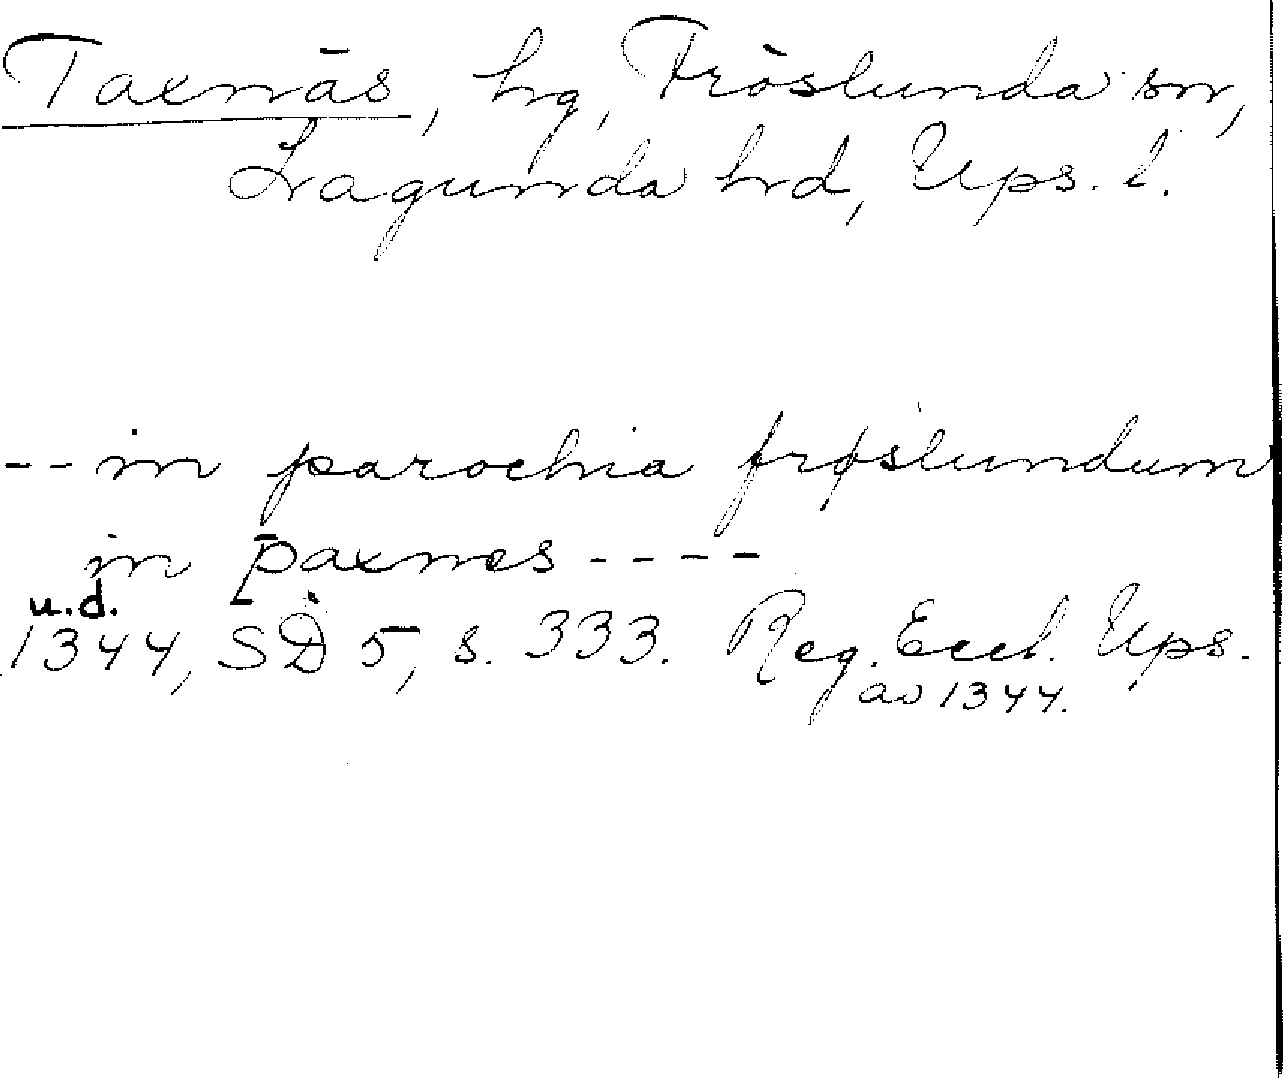 Taxnäs, hg, Fröslunda sn,
Lagunda hd, Ups. l.
-- in parochia frøslundum
in þaxnes ----
u.d.
1344, SD 5, s. 333. Reg. Eccl. Ups.
av 1344.